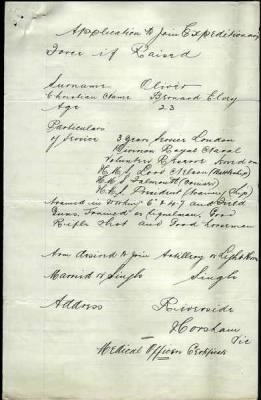 Application to join Expeditionary
Force if Raised
Surname Oliver
Christian Name Bernard Elvy
Age 23
Particulars
of Service 3 years Service London
Division Royal Naval
Volunteer Reserve London
H.M.S Lord Nelson (Battleship)
H.M.S Falmouth (Cruiser)
H.M.S President (training Ship)
trained in working 6" & 4.7 and Field
Guns. Trained as Signalman, Good
Rifle Shot and Good horseman
Arm desired to join Artillery or Light Horse
Married or Single Single
Address Riverside
Horsham
Vic
Medical Officer Certificate